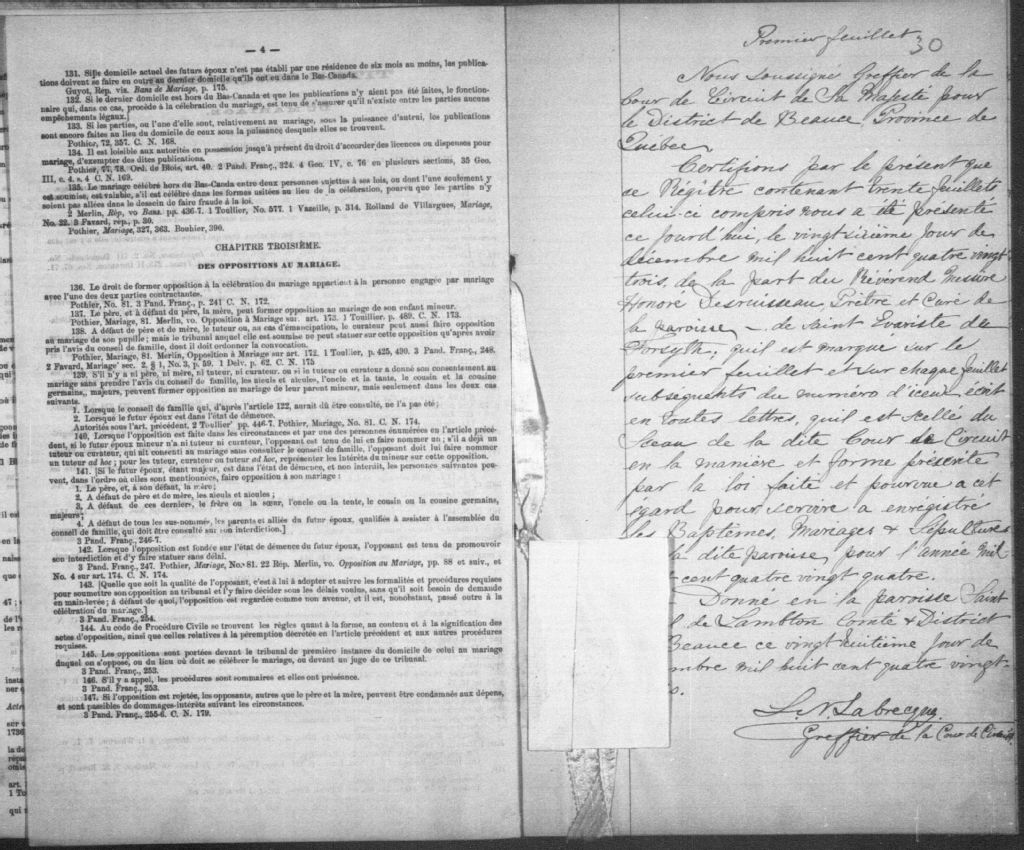 — 4 —
131. Si le domicile actuel des futurs époux n'est pas établi par une résidence de six mois au moins, les publica-
tions doivent se faire en outre au dernier domicile qu'ils ont eu dans le Bas-Canada.
Guyot, Rép. vis. Bans de Mariage, p. 175.
132. Si le dernier domicile est hors du Bas-Canada et que les publications n'y aient pas été faites, le fonction-
naire qui, dans ce cas, procède à la célébration du mariage, est tenu de s'assurer qu'il n'existe entre les parties aucuns
empêchements légaux.]
133. Si les parties, ou l'une d'elle sont, relativement au mariage, sous la puissance d'autrui, les publications
sont encore faites au lieu du domicile de ceux sous la puissance desquels elles se trouvent.
Pothier, 72, 357. C. N. 168.
134. Il est loisible aux autorités en possession jusqu'à présent du droit d'accorder des licences ou dispenses pour
mariage, d'exempter des dites publications.
Pothier, 77, 78. Ord. de Blois, art. 40. 2 Pand. Franç., 324. 4 Geo. IV, c. 76 en plusieurs sections, 35 Geo.
III, c. 4. s. 4 C. N. 169.
135. Le mariage célébré hors du Bas-Canda entre deux personnes sujettes à ses lois, ou dont l'une seulement y
est soumise, est valable, s'il est célébré dans les formes usitées au lieu de la célébration, pourvu que les parties n'y
soient pas allées dans le dessein de faire fraude à la loi.
2 Merlin, Rép, vo Bans. pp. 436-7. 1 Toullier, No. 577. 1 Vazeille, p. 314. Rolland de Villargues, Mariage,
No. 22. 3 Favard, rép., p. 30.
Pothier, Mariage, 327, 363. Bouhier, 390.
CHAPITRE TROISIÈME.
DES OPPOSITIONS AU MARIAGE.
136. Le droit de former opposition à la célébration du mariage appartient à la personne engagée par mariage
avec l'une des deux parties contractantes.
Pothier, No. 81. 3 Pand. Franç., p. 241 C. N. 172.
137. Le père, et à défaut du père, la mère, peut former opposition au mariage de son enfant mineur.
Pothier, Mariage, 81. Merlin, vo. Opposition à Mariage sur. art. 173. 1 Touillier. p. 489. C. N. 173.
138. A défaut de père et de mère, le tuteur ou, au cas d'émancipation, le curateur peut aussi faire opposition
au mariage de son pupille; mais le tribunal auquel elle est soumise ne peut statuer sur cette opposition qu'après avoir
pris l'avis du conseil de famille, dont il doit ordonner la convocation.
Pothier, Mariage, 81. Merlin, Opposition à Mariage sur art. 172. 1 Toullier, p. 425, 490. 3 Pand. Franç., 248.
2 Favard, Mariage sec. 2, § 1, No. 3, p. 59. 1 Delv. p. 62. C. N. 175
139. S'il n'y a ni père, ni mère, ni tuteur, ni curateur, ou si le tuteur ou curateur a donné son consentement au
mariage sans prendre l'avis du conseil de famille, les aïeuls et aïeules, l'oncle et la tante, le cousin et la cousine
germains, majeurs, peuvent former opposition au mariage de leur parent mineur, mais seulement dans les deux cas
suivants.
1. Lorsque le conseil de famille qui, d'après l'article 122, aurait dû être consulté, ne l'a pas été;
2. Lorsque le futur époux est dans l'état de démence.
Autorités sous l'art. précédent. 2 Toullier' pp. 446-7. Pothier, Mariage, No. 81. C. N. 174.
140. Lorsque l'opposition est faite dans les circonstances et par une des personnes énumérées en l'article précé-
dent, si le futur époux mineur n'a ni tuteur ni curateur, l'opposant est tenu de lui en faire nommer un; s'il a déjà un
tuteur ou curateur, qui ait consenti au mariage sans consulter le conseil de famille, l'opposant doit lui faire nommer
un tuteur ad hoc; pour les tuteur, curateur ou tuteur ad hoc, représenter les intérêts du mineur sur cette opposition.
141. [Si le futur époux, étant majeur, est dans l'état de démence, et non interdit, les personnes suivantes peu-
vent, dans l'ordre où elles sont mentionnées, faire opposition à son mariage:
1. Le père, et, à son défaut, la mère;
2. A défaut de père et de mère, les aïeuls et aïeules;
3. A défaut de ces derniers, le frère ou la sœur, l'oncle ou la tente, le cousin ou la cousine germains,
majeurs;
4. A défaut de tous les sus-nommés, les parents et alliés du futur époux, qualifiés à assister à l'assemblée du
conseil de famille, qui doit être consulté sur son interdiction.]
3 Pand. Franç., 246-7.
142. Lorsque l'opposition est fondée sur l'état de démence du futur époux, l'opposant est tenu de promouvoir
son interdiction et d'y faire statuer sans délai.
3 Pand. Franç., 247. Pothier, Mariage, No. 81. 22 Rép. Merlin, vo. Opposition au Mariage, pp. 88 et suiv., et
No. 4 sur art. 174. C. N. 174.
143. [Quelle que soit la qualité de l'opposant, c'est à lui à adopter et suivre les formalités et procédures requises
pour soumettre son opposition au tribunal et l'y faire décider sous les délais voulus, sans qu'il soit besoin de demande
en main-levée; à défaut de quoi, l'opposition est regardée comme non avenue, et il est, nonobstant, passé outre à la
célébration du mariage.]
3 Pand. Franç., 254.
144. Au code de Procédure Civile se trouvent les règles quant à la forme, au contenu et à la signification des
actes d'opposition, ainsi que celles relatives à la péremption décrétée en l'article précédent et aux autres procédures
requises.
145. Les oppositions sont portées devant le tribunal de première instance du domicile de celui au mariage
duquel on s'oppose, ou du lieu où doit se célébrer le mariage, ou devant un juge de ce tribunal.
3 Pand. Franç., 253.
146. S'il y a appel, les procédures sont sommaires et elles ont préséance.
3 Pand. Franç., 253.
147. Si l'opposition est rejetée, les opposants, autres que le père et la mère, peuvent être condamnés aux dépens,
et sont passibles de dommages-intérêts suivant les circonstances.
3 Pand. Franç., 255-6. C. N. 179.
Premier feuillet 30
Nous Soussigné Greffier de la
Cour de Circuit de Sa Majesté pour
le District de Beauce Province de
Québec
Certifions par le présent que
ce Régitre contenant trente feuillets
celui-ci compris nous a été présenté
ce jourd'hui, le vingt sixième jour de
décembre mil huit cent quatre vingt
trois, de la part du Révérend Messire
Honoré Desruisseau, Prêtre et Curé de
la paroisse - de Saint Evariste de
Forsyth, qu'il est marqué sur le
premier feuillet et sur chaque feuillet
subséquents du numéro d'iceux écrit
en toutes lettres, qu'il est scellé du
sceau de la dite Cour de Circuit
en la manière et forme préscrite
par la loi faite et pourvue a cet
égard pour servire a enrégistré
les Baptêmes, Mariages & Sépultures
dite paroisse, pour l'année mil
cent quatre vingt quatre.
Donné en la paroisse Saint
de Lambton Comté & District
Beauce ce vingt huitième jour de
mbre mil huit cent quatre vingt-
o.
L. N. Labrecque
Greffier de la Cour de Circuit